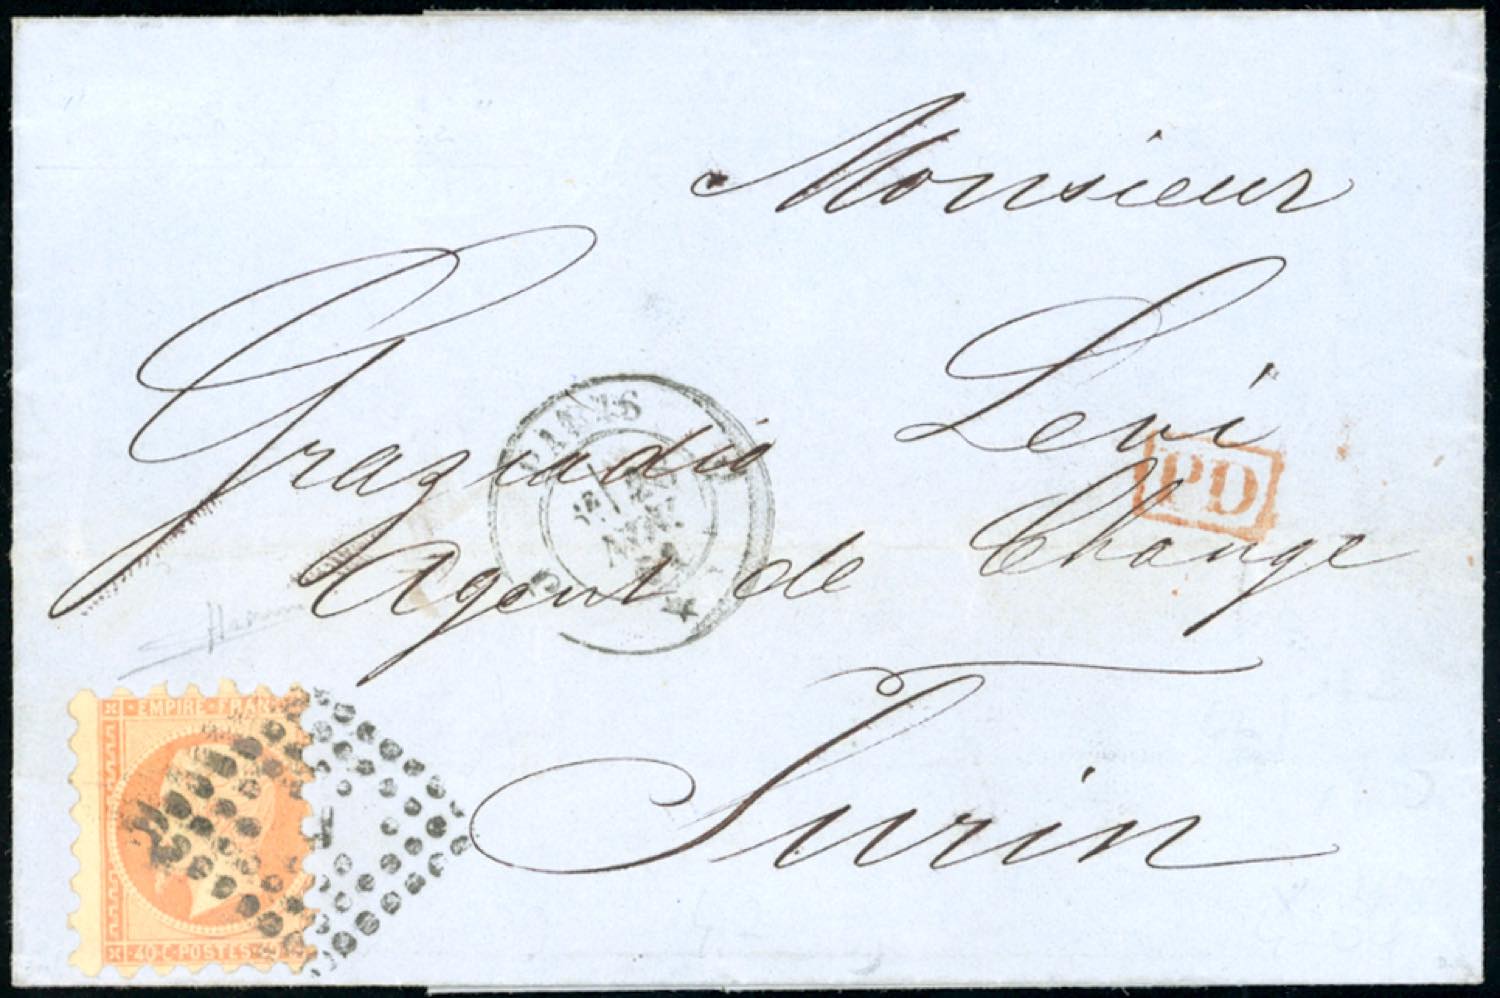 Monsieur
Graziadio Levi
PD
Agent de Change
Turin
PARIS
EMPIRE FRAN
40 C POSTES 40